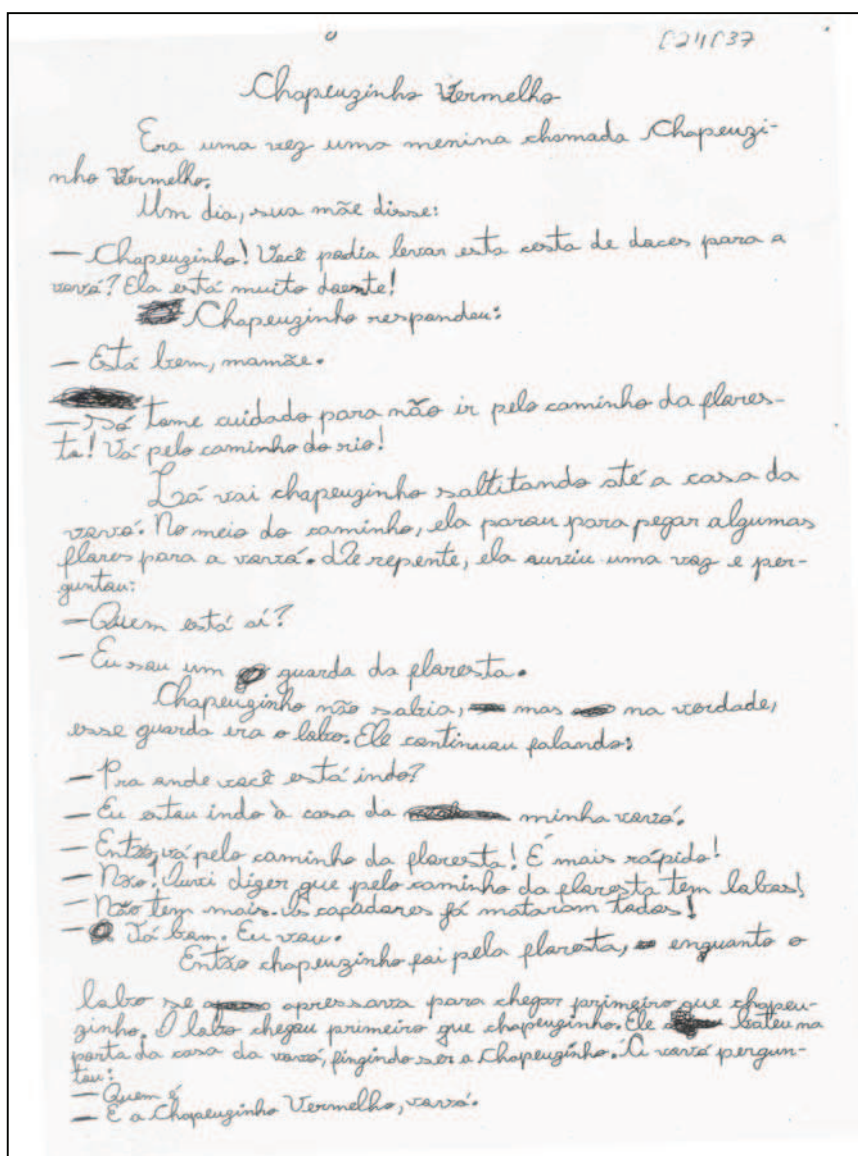 Chapeuzinho Vermelho
Era uma vez uma menina chamada Chapeuzi-
nho Vermelho.
Um dia, sua mãe disse:
— Chapeuzinho! Você podia levar esta cesta de doces para a
vovó? Ela está muito doente!
Chapeuzinho respondeu:
— Está bem, mamãe.
— Só tome cuidado para não ir pelo caminho da flores-
ta! Vá pelo caminho do rio!
Lá vai chapeuzinho saltitando até a casa da
vovó. No meio do caminho, ela parou para pegar algumas
flores para a vovó. De repente, ela ouviu uma voz e per-
guntou:
— Quem está aí?
— Eu sou um guarda da floresta.
Chapeuzinho não sabia, mas na verdade,
esse guarda era o lobo. Ele continuou falando:
— Pra onde você está indo?
— Eu estou indo à casa da minha vovó.
— Então, vá pelo caminho da floresta! É mais rápido!
— Não! Ouvi dizer que pelo caminho da floresta tem lobos!
— Não tem mais. Os caçadores já mataram todos!
— Tá bom. Eu vou.
Então chapeuzinho foi pela floresta, enquanto o
lobo se apressava para chegar primeiro que chapeu-
zinho. O lobo chegou primeiro que chapeuzinho. Ele bateu na
porta da casa da vovó, fingindo ser a Chapeuzinho. A vovó pergun-
tou:
— Quem é
— É a Chapeuzinho Vermelho, vovó.